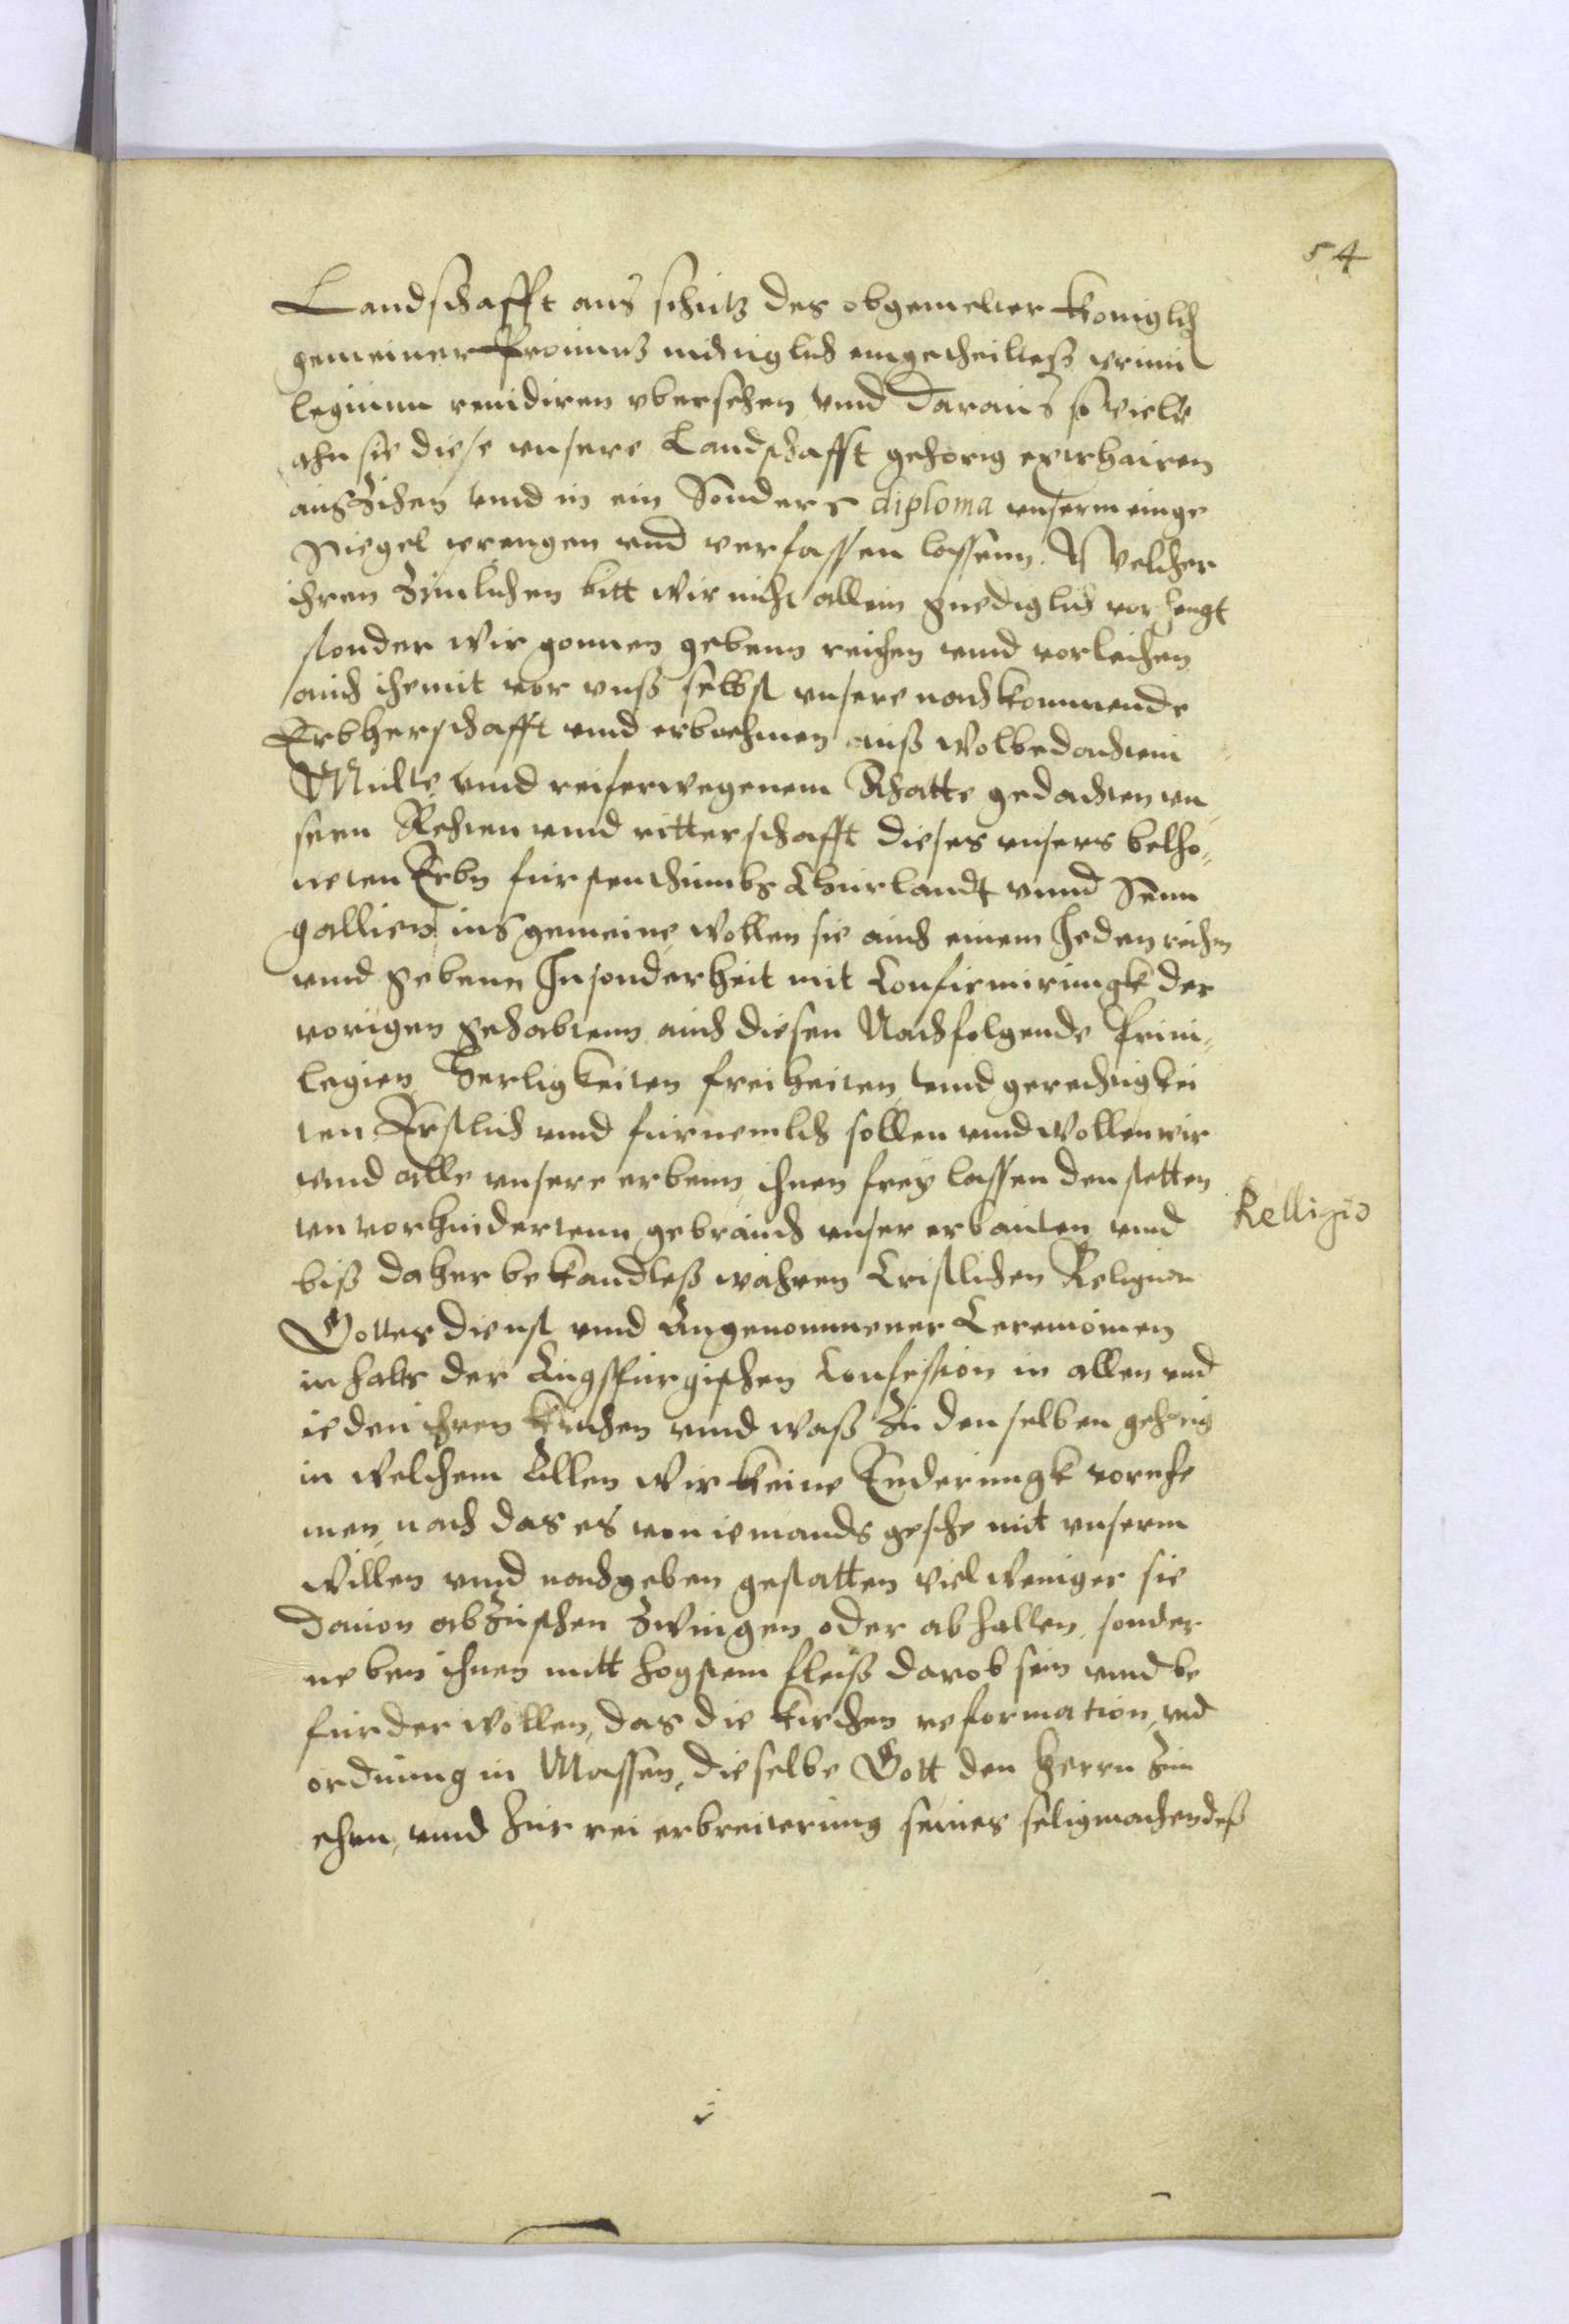 54
Landschafft aus schutz des obgemelter Koniglich
gemeiner Prouintz mitiglich mitgetheilteß priui
legiium reuidiren vbersehen vnnd daraus so vielle
ahn sie diese vnsere Landschafft gehorig extrhairen
auszihen vnnd in ein Sonders diploma vnserm einge
Siegel prengen vnd verfassen lassenn. Welcher
ihren zimlichen bitt wir nicht allein gnediglich vor hengt
sonder wir gonnen gebenn reichen vnnd vorleihen
auch ihemit vor vnß selbst vnsere nachkommende
Erbherschafft vnnd erbnehmen auß wolbedachtem
Mutte vnnd reiferwegenem Rhatte gedachten vn
sern Rehten vnnd ritterschafft dieses vnsers belho⸗
neten Erbn furstenthumbs Churlandt vnnd Sem
gallien ins gemeine wollen sie auch einem Jeden reichen
vnnd gebenn Insonderheit mit Confirmirungk der
vorigen gehabtenn auch diesen Nachfolgende Priui⸗
legien Herligkeiten freiheiten vnnd gerechtigkei
ten Erstlich vnnd furnemlich sollen vnnd wollen wir
vnnd alle vnsere erbenn ihnen frey lassen den stetten
vnvorhindertenn gebrauch vnser erbauten vnnd
Relligio
biß daher bekandteß wahren Cristlichen Religion
Gottes dienst vnnd Angenommener Ceremonien
inhalts der Augspurgischen Confession in allen vnd
ieden ihren Kirchen vnnd waß zu denselben gehorig
in welchem Allen wir keine Enderungk vornehe
men, noch das es von iemands geschehe mit vnserm
willen vnnd nachgeben gestatten viel weniger sie
dauon abzustehen zwingen oder abhalten, sonder
neben ihnen mitt hogstem fleiß darob sein vnnd be
furder wollen, das die Kirchen reformation, vnd
ordnung in Massen, dieselbe Gott den Herrn zu
ehren, vnnd zur erbreiterung seines seligmachendeß